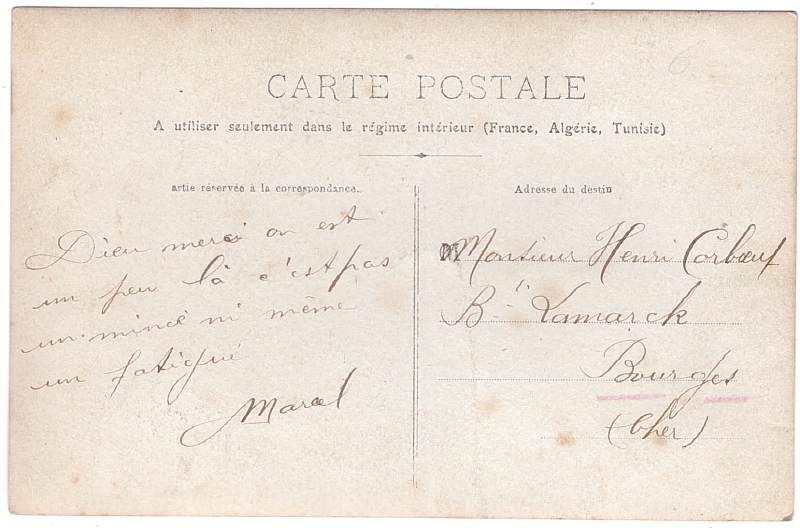 CARTE POSTALE
A utiliser seulement dans le régime intérieur (France, Algérie, Tunisie)
artie réservée à la correspondance.
Dieu merci on est
un peu là c'est pas
un mince ni même
un fatigué
Marcel
Adresse du destin
Monsieur Henri Corbœuf
Bd Lamarck
Bourges
(Cher)